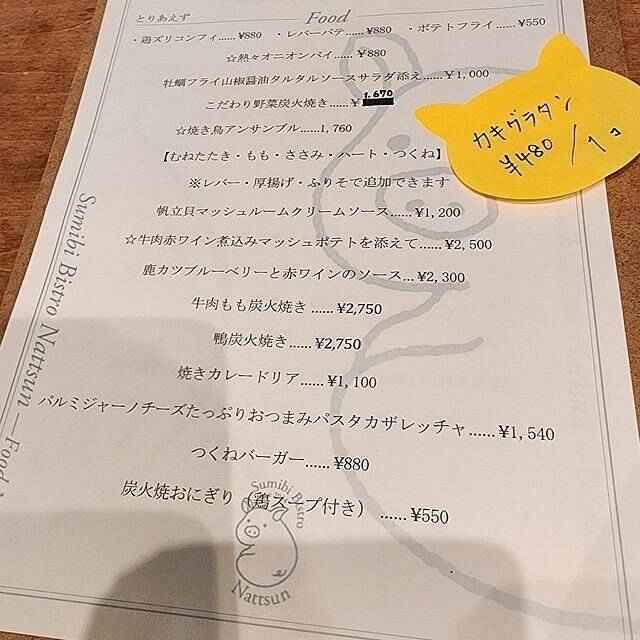 とりあえず
Food
・鶏ズリコンフィ......¥880 ・レバーパテ......¥880 ・ポテトフライ......¥550
☆熱々オニオンパイ......¥880
牡蠣フライ山椒醤油タルタルソースサラダ添え......¥1,000
こだわり野菜炭火焼き......¥ 1,670
☆焼き鳥アンサンブル......1,760
【むねたたき・もも・ささみ・ハート・つくね】
※レバー・厚揚げ・ふりそで追加できます
帆立貝マッシュルームクリームソース......¥1,200
☆牛肉赤ワイン煮込みマッシュポテトを添えて......¥2,500
鹿カツブルーベリーと赤ワインのソース...¥2,300
牛肉もも炭火焼き ......¥2,750
鴨炭火焼き......¥2,750
焼きカレードリア......¥1,100
パルミジャーノチーズたっぷりおつまみパスタカザレッチャ......¥1,540
つくねバーガー......¥880
炭火焼おにぎり (鶏スープ付き) ......¥550
カキグラタン
¥480/1コ
Sumibi Bistro Nattsun — Food
Sumibi Bistro
Nattsun